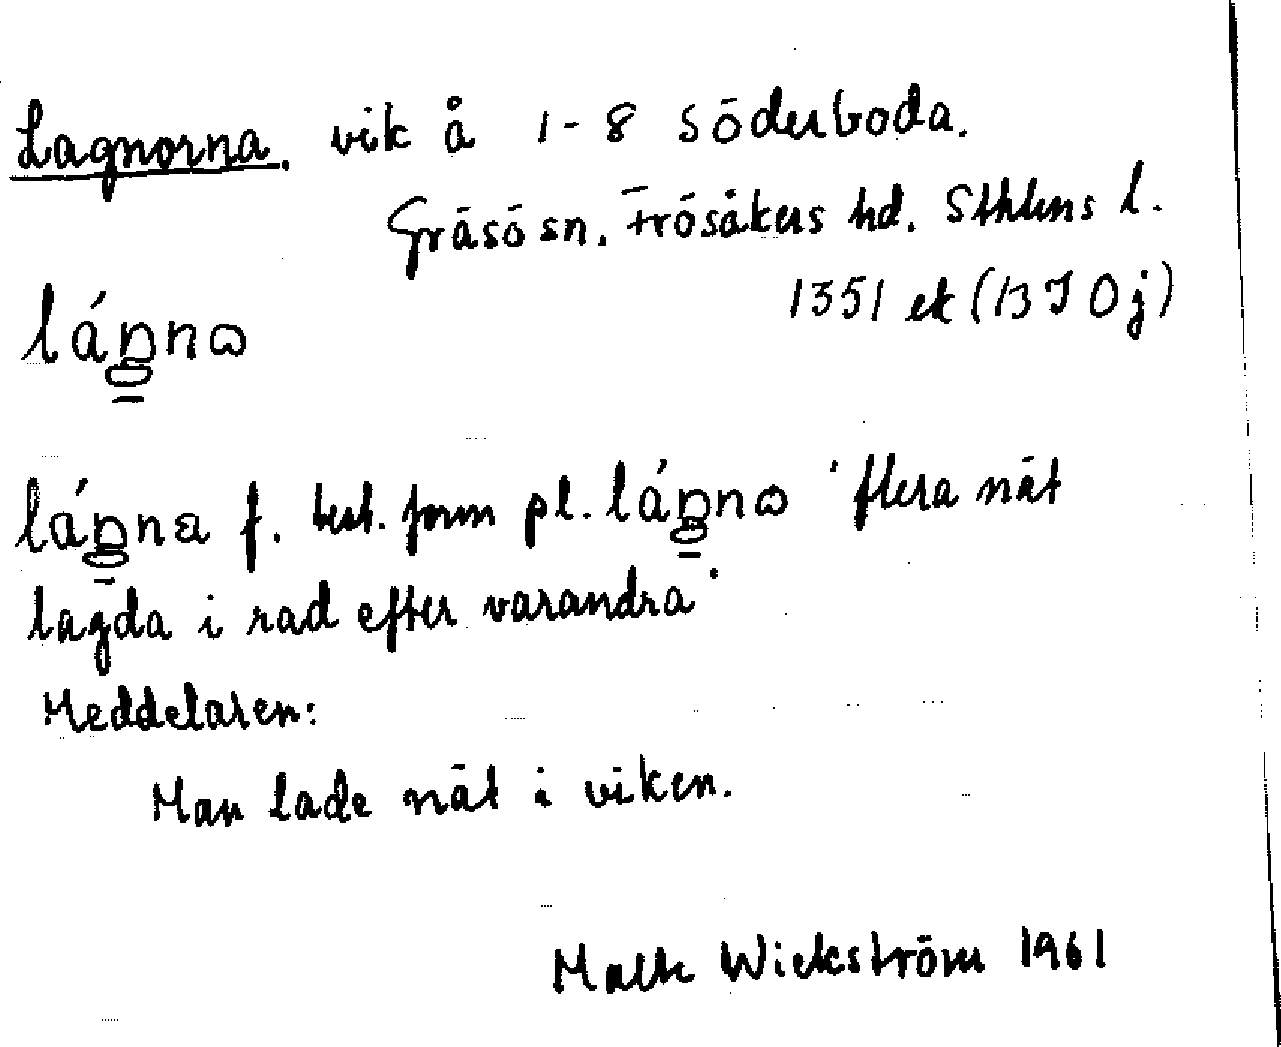 Lagnorna. vik å 1-8 Söderboda.
Gräsö sn. Frösåkers hd. Sthlms l.
1351 ek (13I 0j)
láŋnɷ
láŋna f. best. form pl. láŋnɷ 'flera nät
lagda i rad efter varandra'
Meddelaren:
Man lade nät i viken.
Malte Wickström 1961